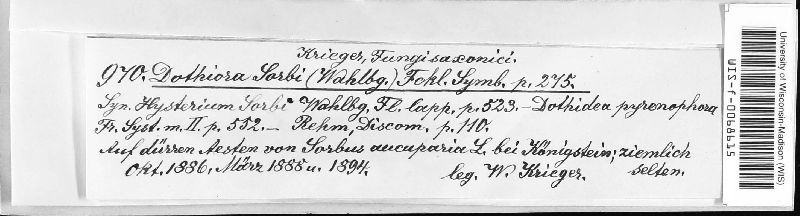 Krieger, Fungi saxonici.
970. Dothiora Sorbi (Wahlbg.) Fckl. Symb. p. 275.
Syn. Hysterium Sorbi Wahlbg. Fl. lapp. p. 523. – Dothidea pyrenophora
Fr. Syst. m. II. p. 552. – Rehm, Discom. p. 110.
Auf dürren Aesten von Sorbus aucuparia L. bei Königstein; ziemlich
selten.
Okt. 1886, März 1888 u. 1894.
leg. W. Krieger.
University of Wisconsin-Madison (WIS)
WIS-f-0068615